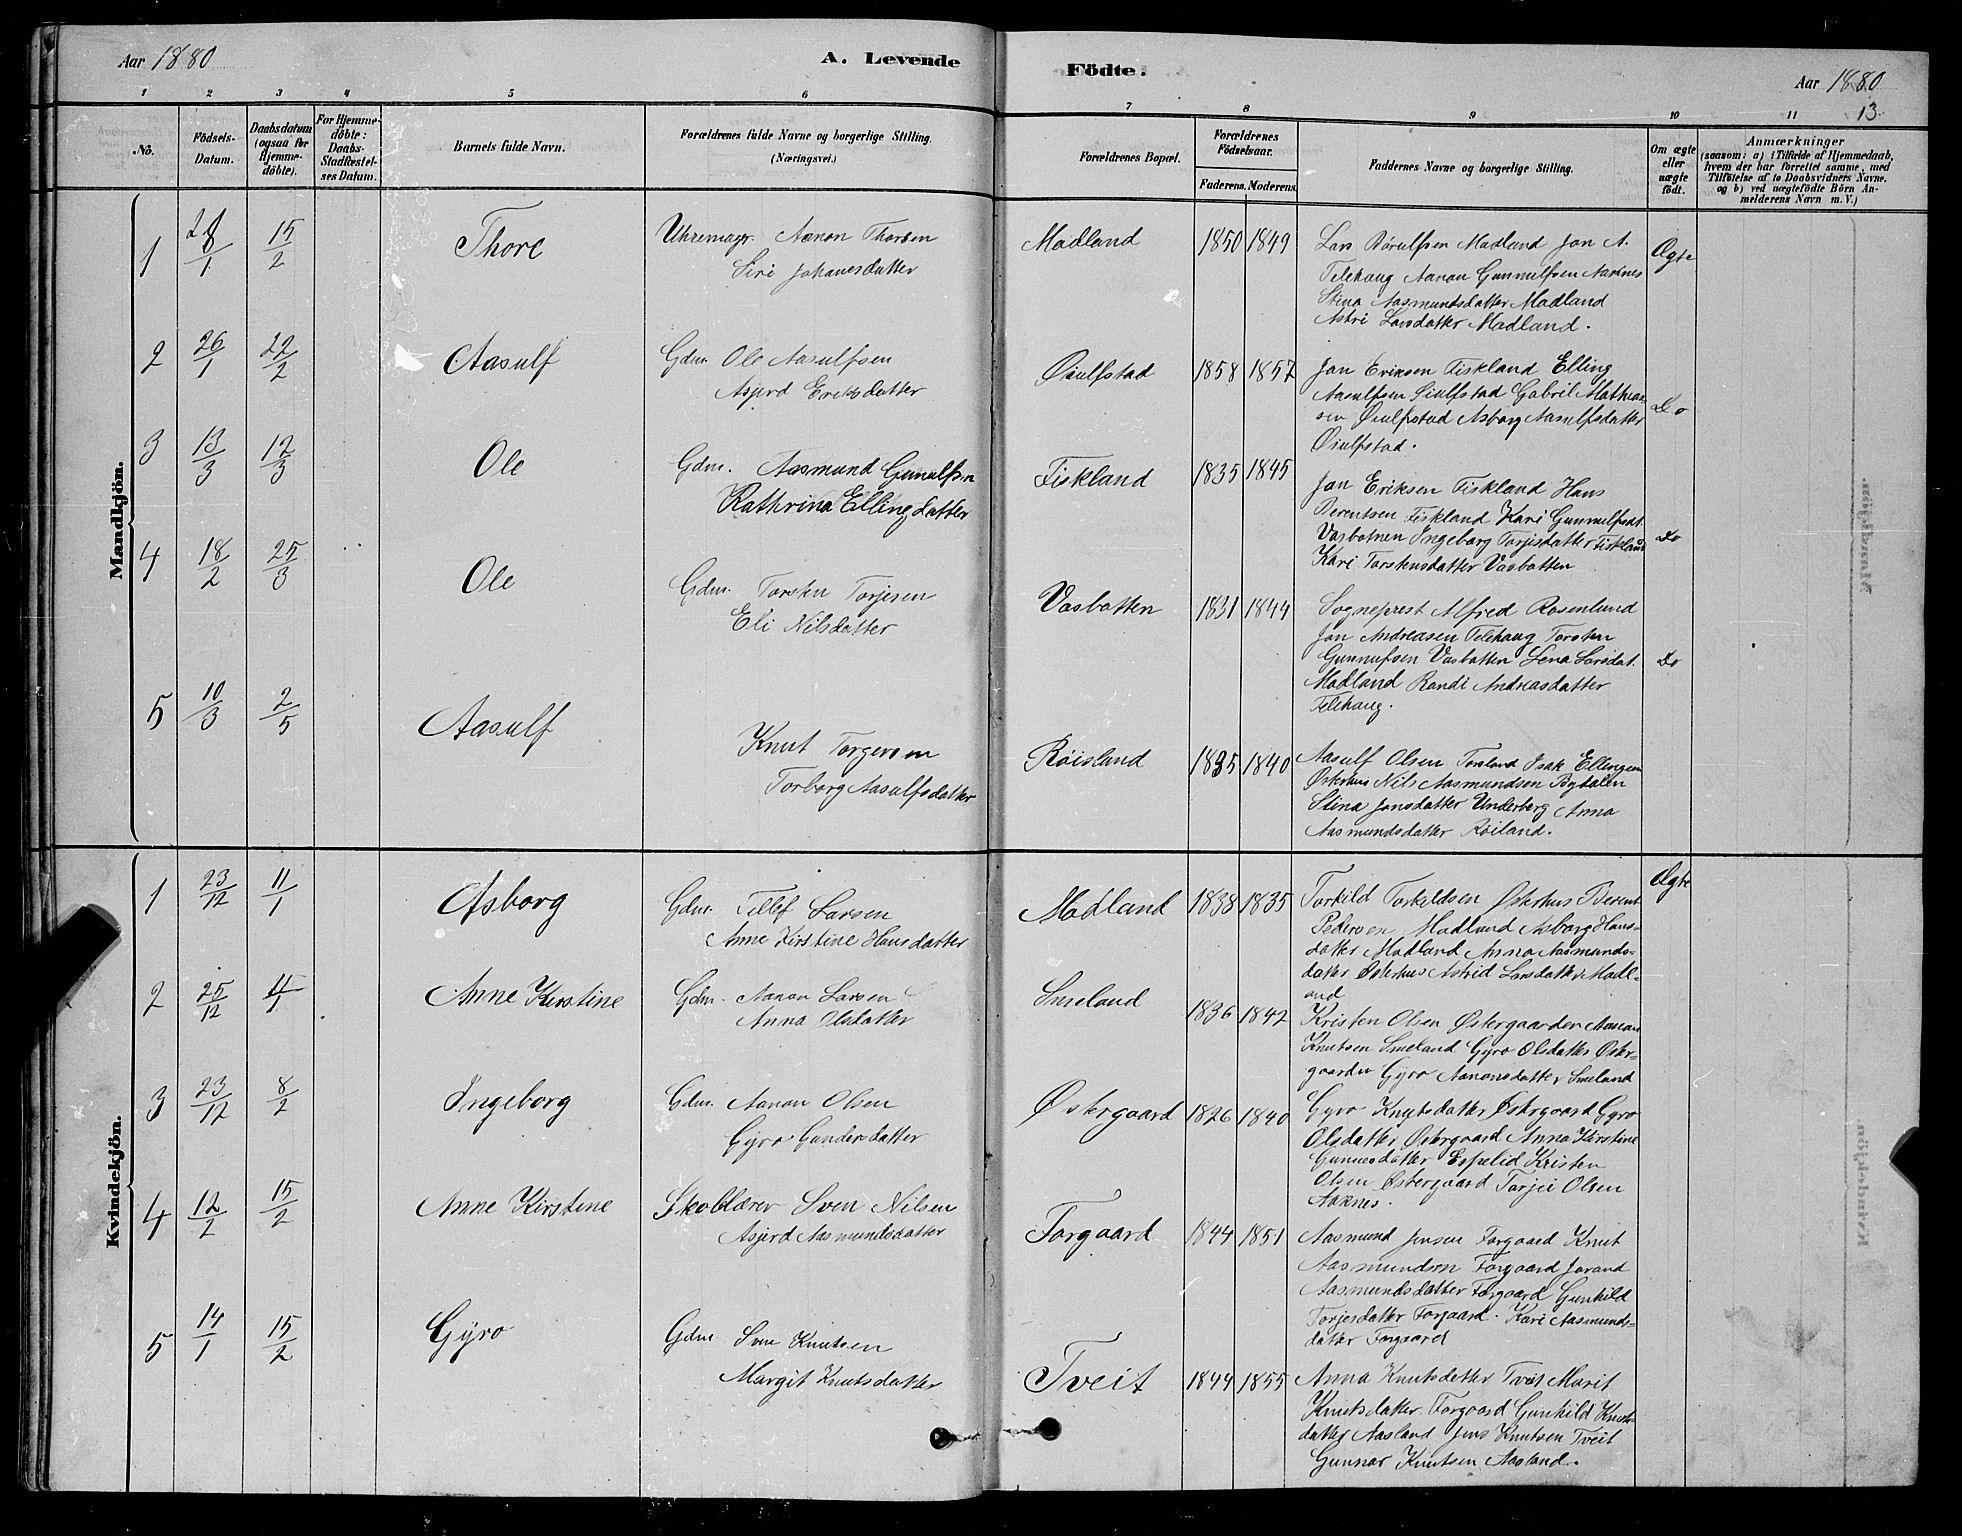 Aar 1880
A. Levende
Födte.
Aar 1880
13
1
2
3
4
5
6
7
8
9
10
11
No.
Födsels-Datum.
Daabsdatum (ogsaa for Hjemmedöbte).
For Hjemmedöbte: Daabs-Stadfæstelses Datum.
Barnets fulde Navn.
Forældrenes fulde Navne og borgerlige Stilling. (Næringsvei.)
Forældrenes Bopæl.
Forældrenes Födselsaar.
Faderens. Moderens.
Faddernes Navne og borgerlige Stilling.
Om ægte eller uægte födt.
Anmærkninger
(saasom: a) i Tilfælde af Hjemmedaab,
hvem der har forrettet samme, med
Tilföielse af to Daabsvidners Navne.
og b) ved uægtefödte Börn An-
melderens Navn m. V.)
Mandkjön.
1 15/2 Thore Uhremagr. Aanon Thorsen
Siri Johanesdatter
Madland 1850 1849
Lars Madland Jon A.
Telehaug Aanon Gunnulfsen Aaknes
Stina Aasmundsdatter Madland
Astri Larsdatter Madland.
Ægte
2 26/1 22/2 Aasulf Gdm. Ole Aasulfsen
Asjerd Eriksdatter
Øiulfstad 1858 1857
Jon Eriksen Fiskland Elling
Aasulfsen Øiulfstad Gabriel Mathias-
sen Øiulfstad Asborg Aasulfsdatter
Øiulfstad.
Do
3 13/3 12/3 Ole Gdm. Aasmund Gunulfsn
Kathrina Ellingsdatter
Fiskland 1835 1845
Jon Eriksen Fiskland Hans
Berentsen Fiskland Kari Gunnulfsdt.
Vasbotnen Ingeborg Torjisdatter Fiskland
Kari Torstensdatter Vasbotten
Do
4 18/2 25/3 Ole Gdm. Torsten Torjesen
Eli Nilsdatter
Vasbotten 1831 1844
Sogneprest Alfred Rosenlund
Jon Andreasen Telehaug Torsten
Gunnufsen Vasbotten Lena Larsdat.
Madland Randi Andreasdatter
Telehaug.
Do
5 10/3 2/5 Aasulf Knut Torgersen
Torborg Aasulfsdatter
Röisland 1835 1840
Aasulf Olsen Isak Ellingsen
Østerhus Nils Aasmundsen
Stina Jonsdatter Underberg Anna
Aasmundsdatter Röiland.
Kvindekjön.
1 23/12 11/1 Asborg Gdm. Tellef Larsen
Anne Kirstine Hansdatter
Madland 1838 1835
Torkild Torkildsen Østerhus Berent
Pedersen Madland Asborg Hans-
datter Madland Anna Aasmunds-
datter Østerhus Astrid Larsdatter Madl-
and
Ægte
2 25/12 4/1 Anne Kirstine Gdm. Aanon Larsen
Anna Olsdatter
Smeland 1836 1842
Kristen Olsen Østergaarden Aanon
Knutsen Smeland Gyro Olsdatter Øster-
gaarden Gyro Aanonsdatter Smeland
3 23/12 8/2 Ingeborg Gdm. Aanon Olsen
Gyro Gundersdatter
Østergaard 1826 1840
Gyro Knutsdatter Østergaard Gyro
Olsdatter Østergaard Anna Kirstine
Gunnersdatter Espelid Kristen
Olsen Østergaard Torjei Olsen
Aaknes.
4 12/2 15/2 Anne Kirstine Skolelærer Sven Nilsen
Asjerd Aasmundsdatter
Forgaard 1844 1851
Aasmund Jensen Forgaard Knut
Aasmundsen Forgaard Jorand
Aasmundsdatter Forgaard Gunhild
Torjesdatter Forgaard. Kari Aasmunds-
datter Forgaard
5 14/1 15/2 Gyro Gdm Sven Knutsen
Margit Knutsdatter
Tveit 1844 1855
Anna Knutsdatter Tveit Marit
Knutsdatter Forgaard Gunhild Knuts-
datter Aasland Jens Knutsen Tveit
Gunnar Knutsen Aasland.